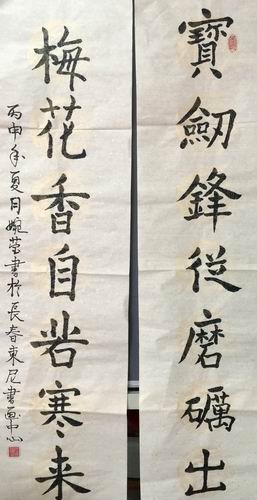 寶劒鋒從磨礪出
梅花香自苦寒来
丙申年夏月婉莹書於長春東尼書画中心